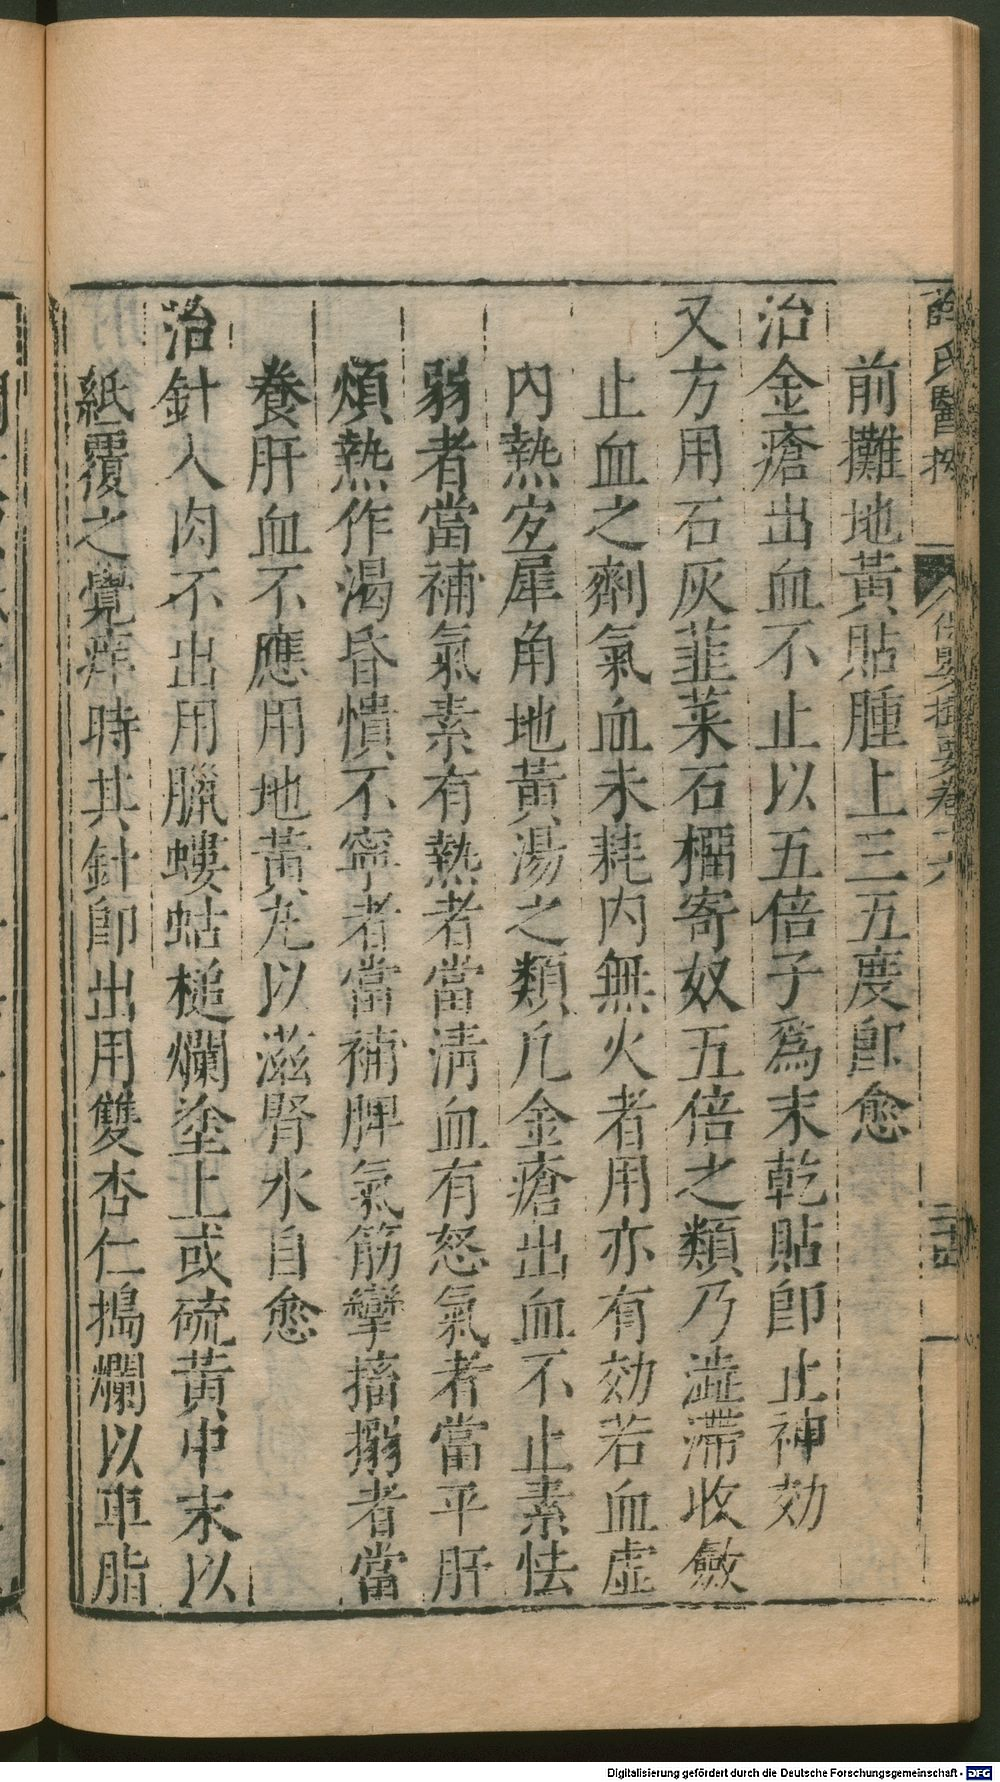 薛氏醫按 保嬰撮要卷十六 二十四
前攤地黃貼腫上三五度即愈
治金瘡出血不止以五倍子爲末乾貼即止神効
又方用石灰韮菜石榴寄奴五倍之類乃澁滯收斂
止血之劑氣血未耗内無火者用亦有効若血虛
内熱宜犀角地黃湯之類凢金瘡出血不止素怯
弱者當補氣素有熱者當清血有怒氣者當平肝
煩熱作渴昏憒不寧者當補脾氣筋攣搐搦者當
養肝血不應用地黃九以滋腎水自愈
治針入肉不出用臘螻蛄槌爛塗上或硫黃中末以
紙覆之覺痒時其針即出用雙杏仁搗爛以車脂
Digitalisierung gefördert durch die Deutsche Forschungsgemeinschaft - DFG